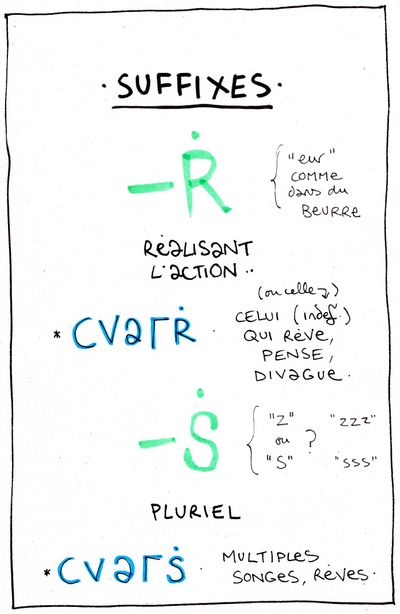 · SUFFIXES ·
-Ṙ
"eur"
COMME
dans du
BEURRE
RÉALISANT
L'ACTION ..
(ou celle)
* CVƏΓṘ · CELUI (indéf.)
QUI RÊVE,
PENSE,
DIVAGUE.
-Ṡ
"Z" "ZZZ"
ou ?
"S" "SSS"
PLURIEL
* CVƏΓṠ · MULTIPLES
SONGES, RÊVES.